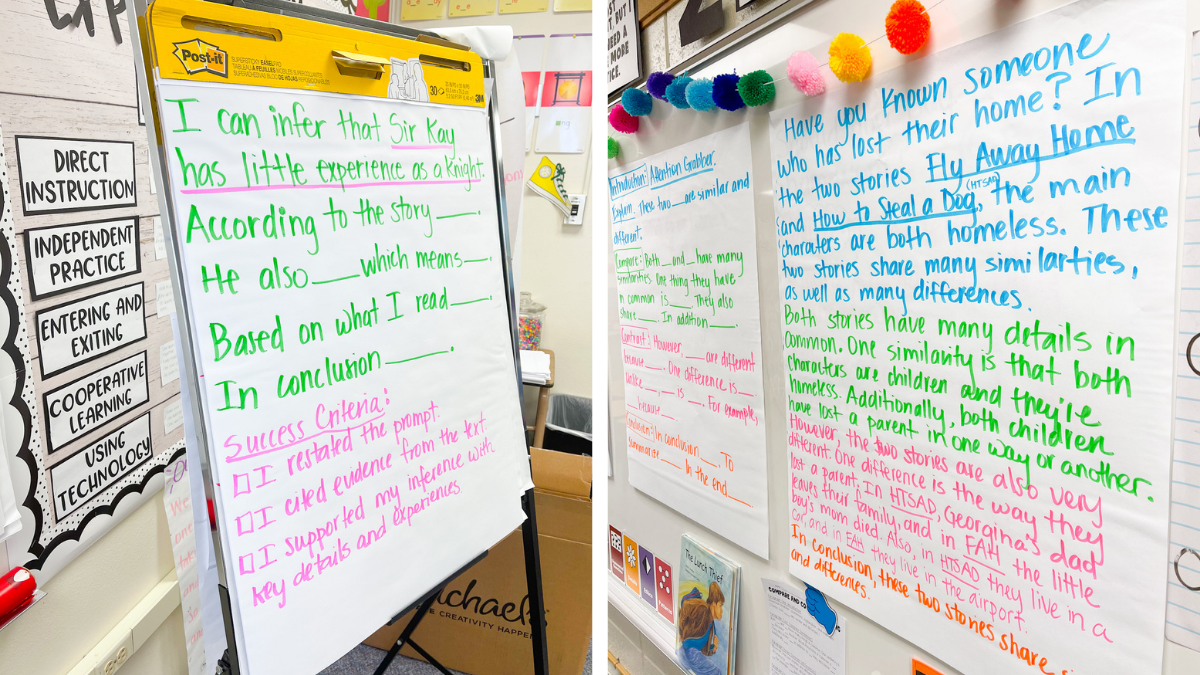 Post-it
30
3M
DIRECT
INSTRUCTION
INDEPENDENT
PRACTICE
ENTERING AND
EXITING
COOPERATIVE
LEARNING
USING
TECHNOLOGY
I can infer that Sir Kay
has little experience as a knight.
According to the story ____.
He also ____ which means ____.
Based on what I read ____.
In conclusion ____.
Success Criteria:
I restated the prompt.
I cited evidence from the text
I supported my inference with
key details and experiences.
ichaels
CREATIVITY HAPPE
NEED A
MORE
Introduction: Attention Grabber.
Explain. These two __ are similar and
different.
Compare: Both __ and __ have many
similarities. One thing they have
in common is ____. They also
share ____. In addition ____.
Contrast: However, ____ are different
because ____. One difference is ____.
Unlike ____, ____ is ____. For example,
____ because ____.
Conclusion: In conclusion ____. To
summarize ____. In the end ____.
Have you known someone
who has lost their home? In
the two stories Fly Away Home
(HTSAD)
and How to Steal a Dog, the main
characters are both homeless. These
two stories share many similarties,
as well as many differences.
Both stories have many details in
common. One similarity is that both
characters are children and they're
homeless. Additionally, both children
have lost a parent in one way or another.
However, the two stories are also very
different. One difference is the way they
lost a parent. In HTSAD, Georgina's dad
leaves their family, and in FAH the little
boy's mom died. Also, in HTSAD they live in a
car, and in FAH they live in the airport.
In conclusion, these two stories share
and differences.
The Lunch Thief
COMPARE AND CO